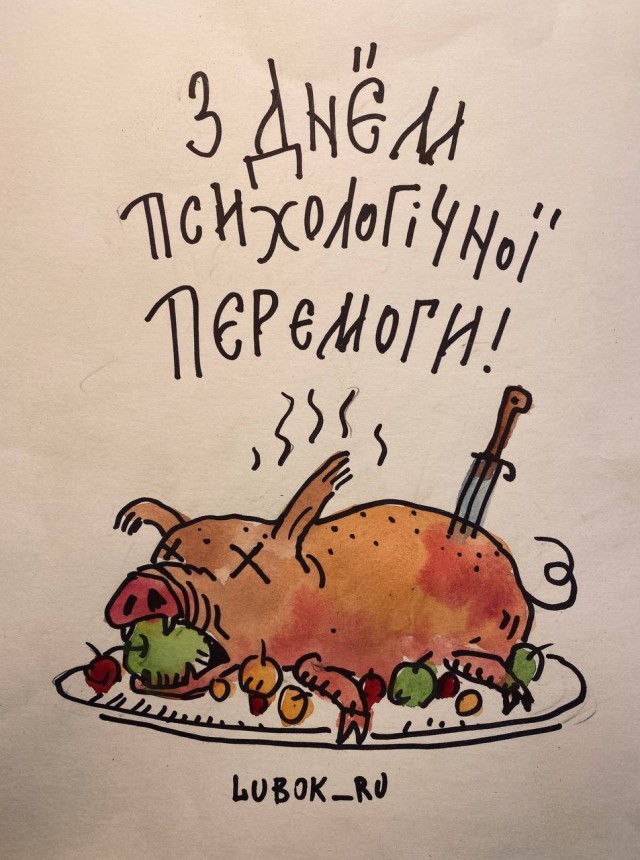 З ДНЁМ
ПСИХОЛОГІЧНОЇ
ПЕРЕМОГИ!
LUBOK_RU